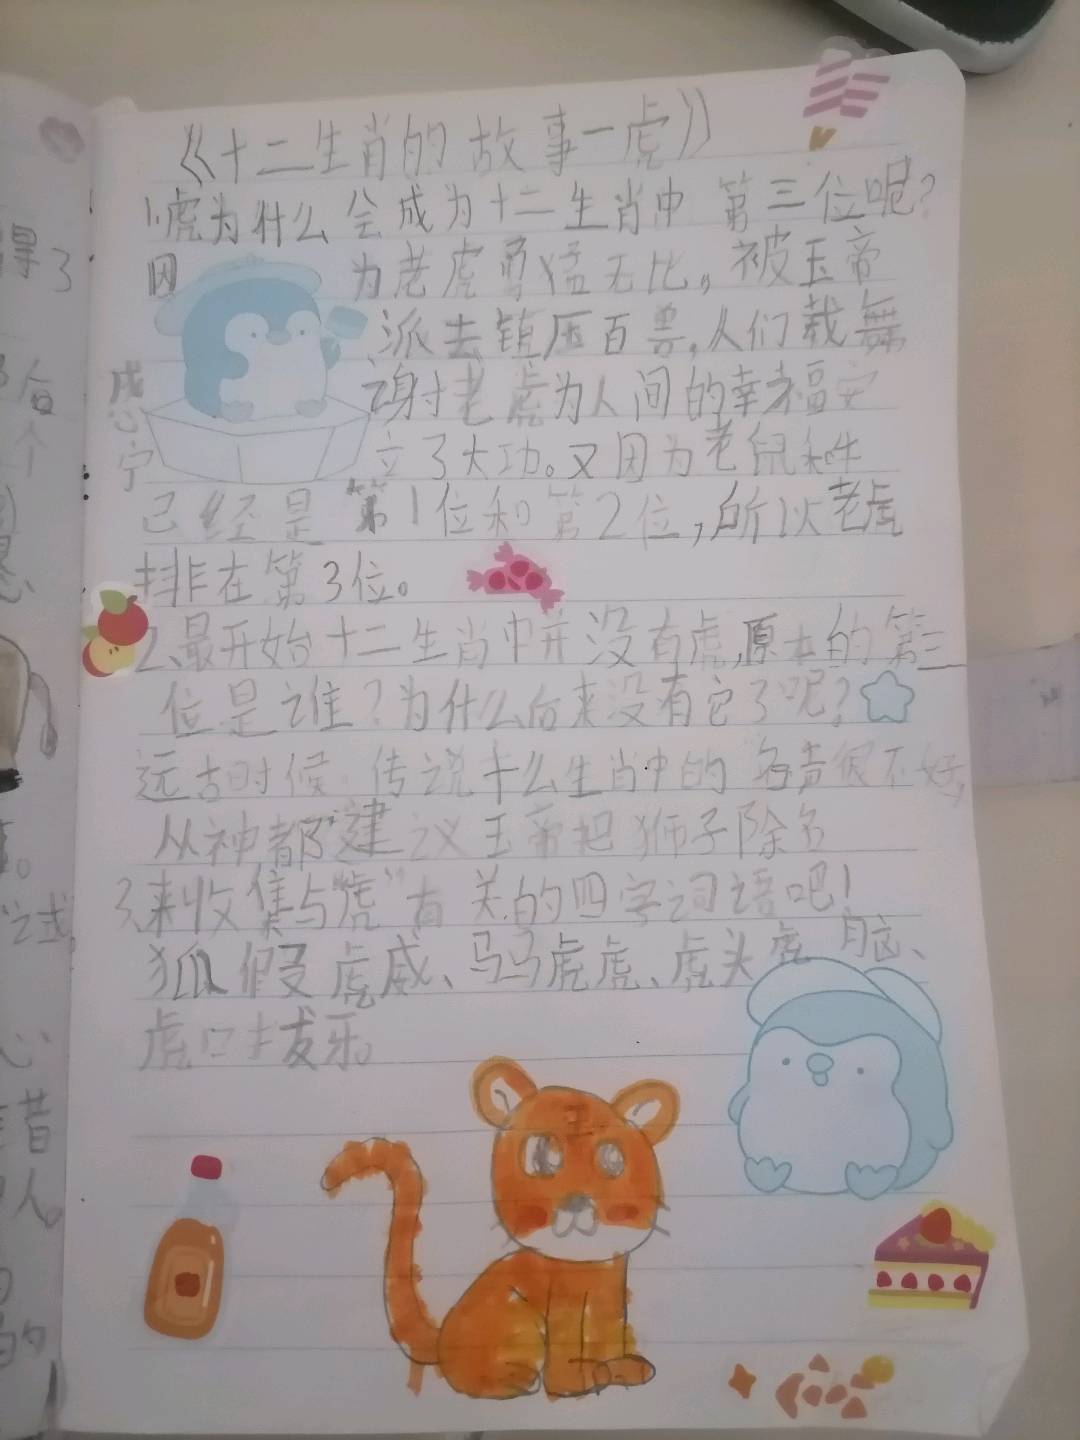 《十二生肖的故事一虎》
1.虎为什么会成为十二生肖中第三位呢?
因为老虎勇猛无比,被玉帝
派去镇压百兽,人们载舞
感谢老虎为人间的幸福安
宁立了大功。又因为老鼠和牛
已经是第1位和第2位,所以老虎
排在第3位。
2、最开始十二生肖中并没有虎,原本的第三
位是谁?为什么后来没有它了呢?
远古时候传说十么生肖中的名声很不好,
从神都建议玉帝把狮子除名
3、来收集与“虎”有关的四字词语吧!
狐假虎威、马马虎虎、虎头虎脑、
虎口拔牙。
得了
后
个
人。
昔
的